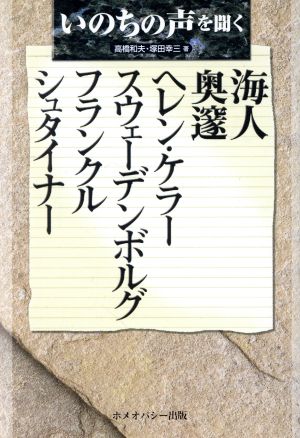 いのちの声を聞く
高橋和夫・塚田幸三 著
海人
奥邃
ヘレン・ケラー
スウェーデンボルグ
フランクル
シュタイナー
ホメオパシー出版